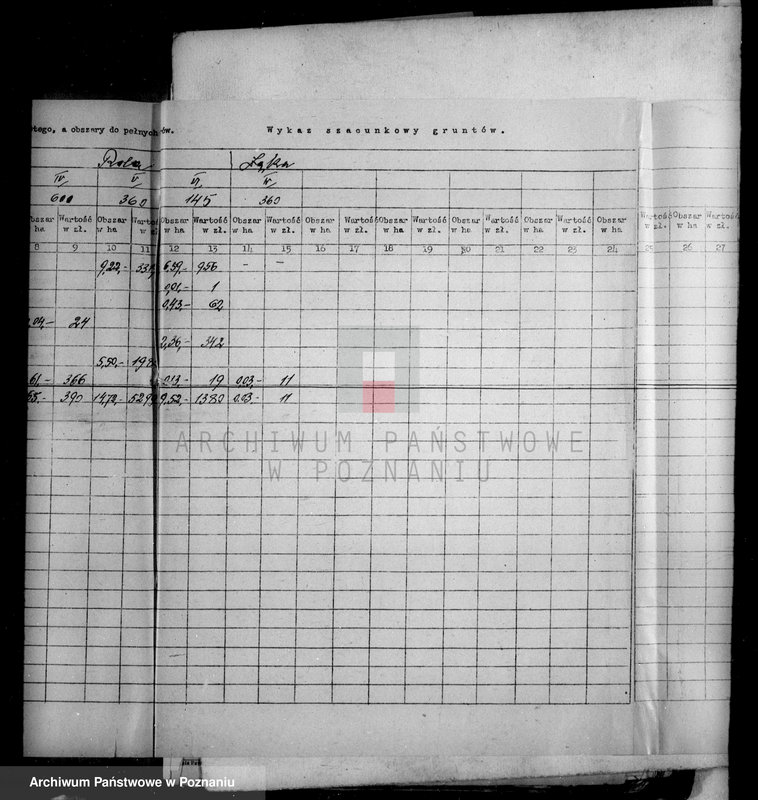 otego, a obszary do pełnych
ów.
Wykaz szacunkowy gruntów.
Rola
Łąka
IV/ V/ VI/ IV/
600 360 145 360
Obszar Wartość Obszar Wartość Obszar Wartość Obszar Wartość Obszar Wartość Obszar Wartość Obszar Wartość Obszar Wartość Obszar Wartość Obszar Wartość
ha w zł. w ha w zł. w ha w zł. w ha w zł. w ha w zł. w ha w zł. w ha w zł. w ha w zł. w ha w zł. w ha w zł.
8 9 10 11 12 13 14 15 16 17 18 19 20 21 22 23 24 25 26 27
9,22,- 6,59,- 956 - -
0,01,- 1
0,43,- 62
,04,- 24
2,36,- 342
5,50,- 198
61,- 366 0,13,- 19 0,03,- 11
65,- 390 14,72,- 529 9,52,- 1380 0,03,- 11
ARCHIWUM PAŃSTWOWE
W POZNANIU
Archiwum Państwowe w Poznaniu